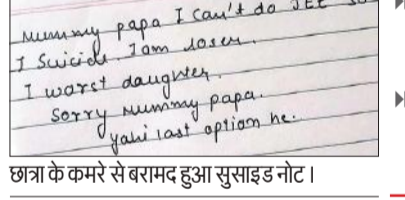 Mummy papa I can't do JEE
I Suicide. I am loser.
I worst daughter.
Sorry Mummy papa.
yahi last option he.
छात्रा के कमरे से बरामद हुआ सुसाइड नोट।